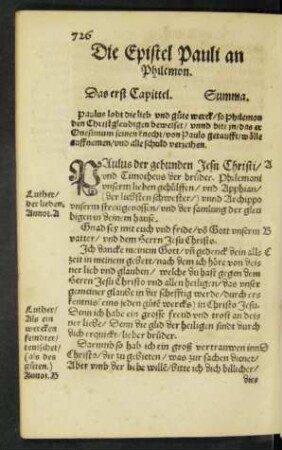 726
Die Epistel Pauli an
Philemon.
Das erst Capittel. Summa.
Paulus lobt die lieb vnd güte werck/ so Philemon
den Christgleubigen beweiset/ vnnd bit jn/ das er
Onesimum seinen knecht/ von Paulo getaufft/ wölle
auffnemen/ vnd alle schuld verzeihen.
PAulus der gebunden Jesu Christi/ A
vnd Timotheus der brüder. Philemoni
vnserm lieben gehülffen/ vnd Apphian/
der liebsten schwester/ vnnd Archippo
vnserm streitgenossen/ vnd der samlung der gleu
bigen in deinem hause.
Luther/
der lieben.
Annot. A
Gnad sey mit euch vnd fride/ vō Gott vnserm B
vatter/ vnd dem Herrn Jesu Christo.
Jch dancke meinem Gott/ vñ gedenck dein alle C
zeit in meinem gebett/ nach dem ich höre von dei
ner lieb vnd glauben/ welche du hast gegen dem
Herrn Jesu Christo vnd allen heiligen/ das vnser
gemeiner glaube in dir schefftig werde/ durch er
kentnis eins jeden gůts wercks/ in Christo Jesu.
Denn ich habe ein grosse freud vnd trost an dei
ner liebe/ Denn die glid der heiligen sindt durch
dich erquickt/ lieber brüder.
Luther/
Als ein
wercken
(als den
güten.)
Annot. B
Darumb so hab ich ein groß vertrauwen inn D
Christo/ dir zu gebieten/ was zur sachen dienet/
Aber vmb der liebe wille/ bitte ich dich billicher/
dies